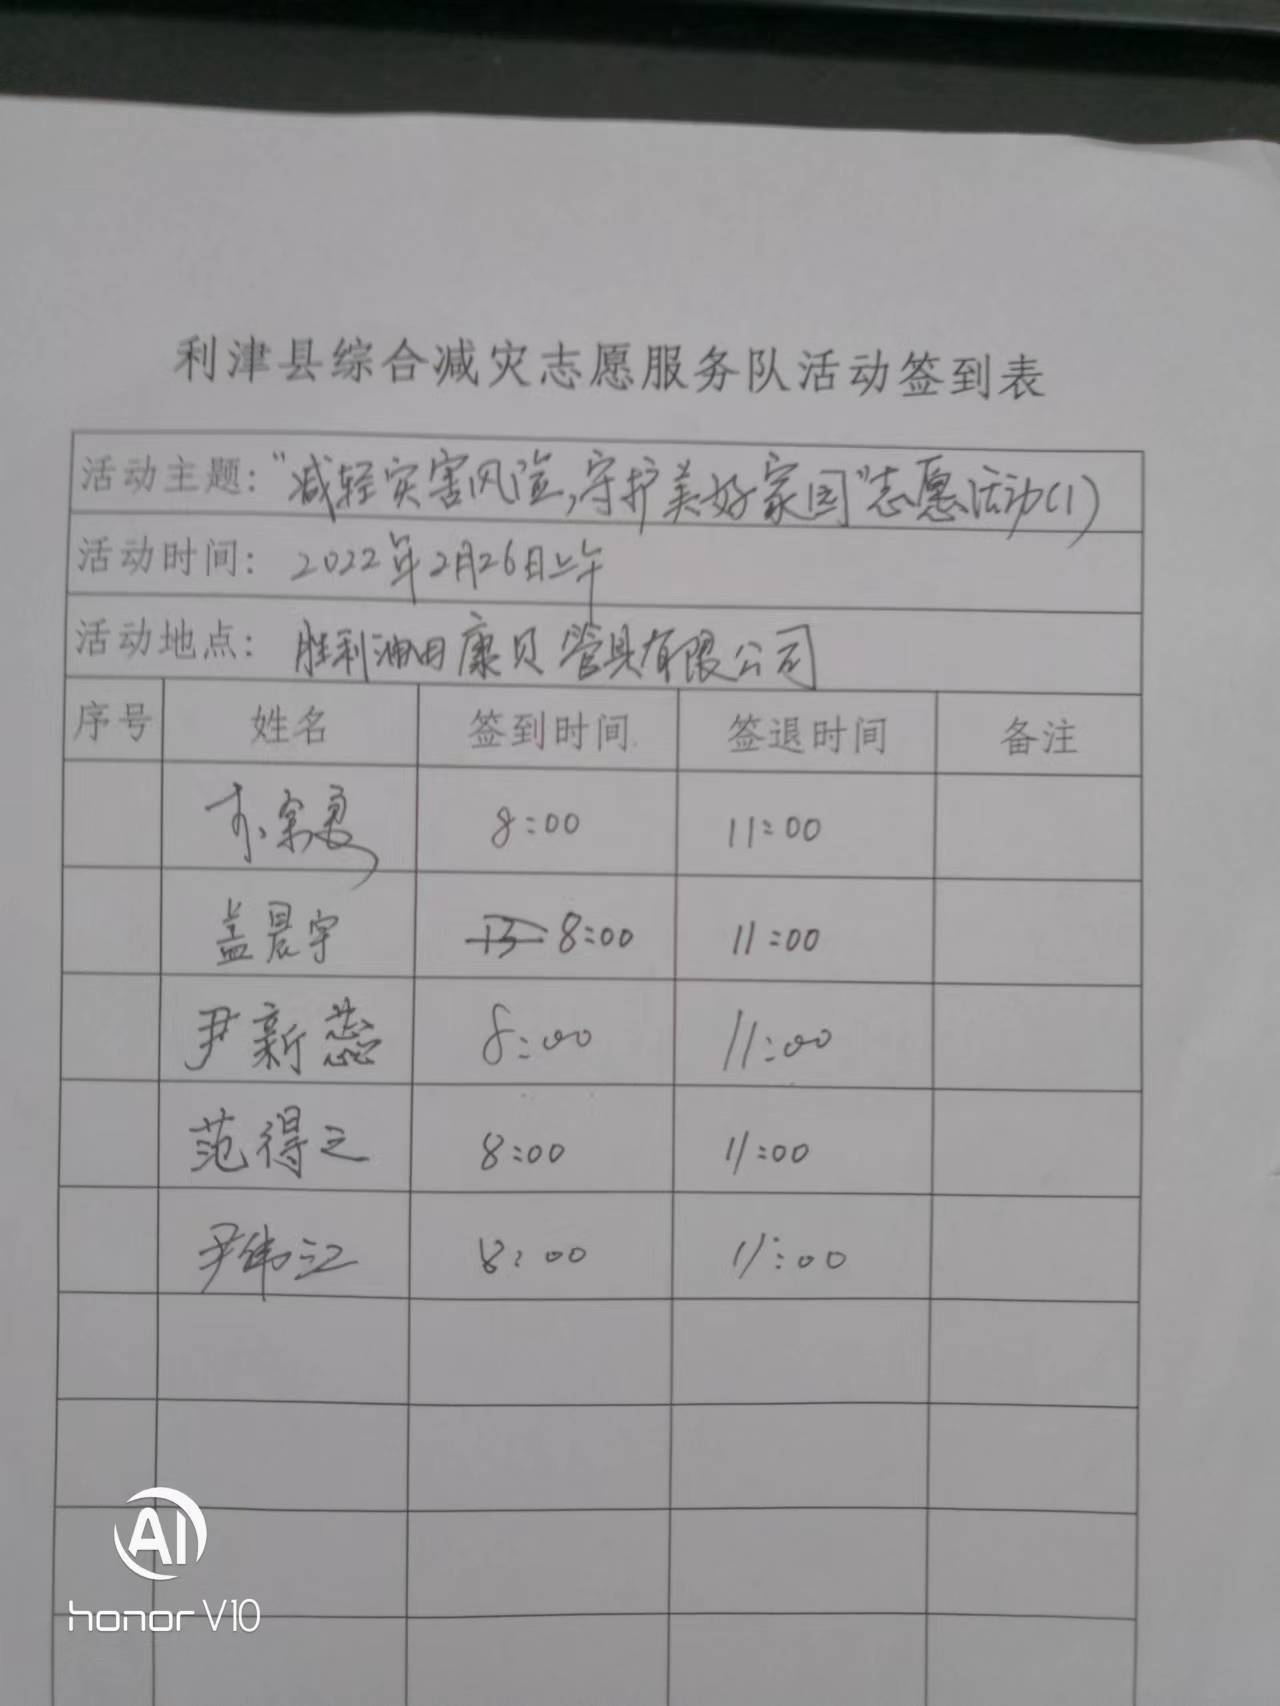 利津县综合减灾志愿服务队活动签到表
活动主题："减轻灾害风险,守护美好家园"志愿活动(1)
活动时间：2022年2月26日上午
活动地点：胜利油田康贝管具有限公司
序号 姓名 签到时间 签退时间 备注
8:00 11:00
盖晨宇 8:00 11:00
尹新蕊 8:00 11:00
范得之 8:00 11:00
尹伟江 8:00 11:00
AI
honor V10